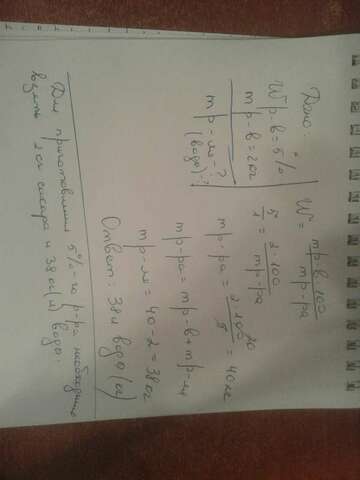 Дано:
Wр-в=5%
mр-в=2кг
mр-ля-?
(вода)-?
W = mр-в·100 / mр-ра
5/1 = 2·100 / mр-ра
mр-ра = 2·100 20 / 5 = 40кг
mр-ра = mр-в + mр-ля
mр-ля = 40-2=38кг
Ответ: 38л вода (кг)
Для приготовления 5%-го р-ра необходимо
взять 2кг сахара и 38кг(л) воды.